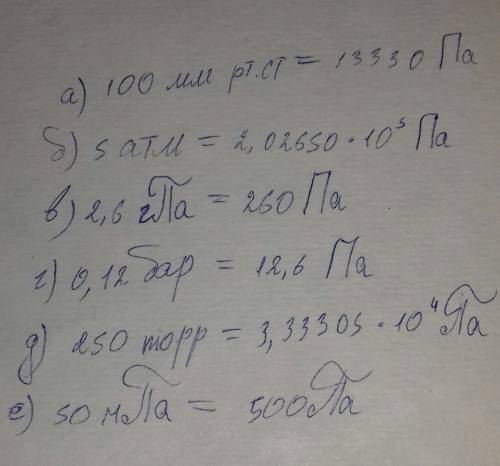 а) 100 мм рт.ст = 13330 Па
б) 5 атм = 2,02650·10⁵ Па
в) 2,6 гПа = 260 Па
г) 0,12 бар = 12,6 Па
д) 250 торр = 3,33305·10⁴ Па
е) 50 мПа = 500 Па